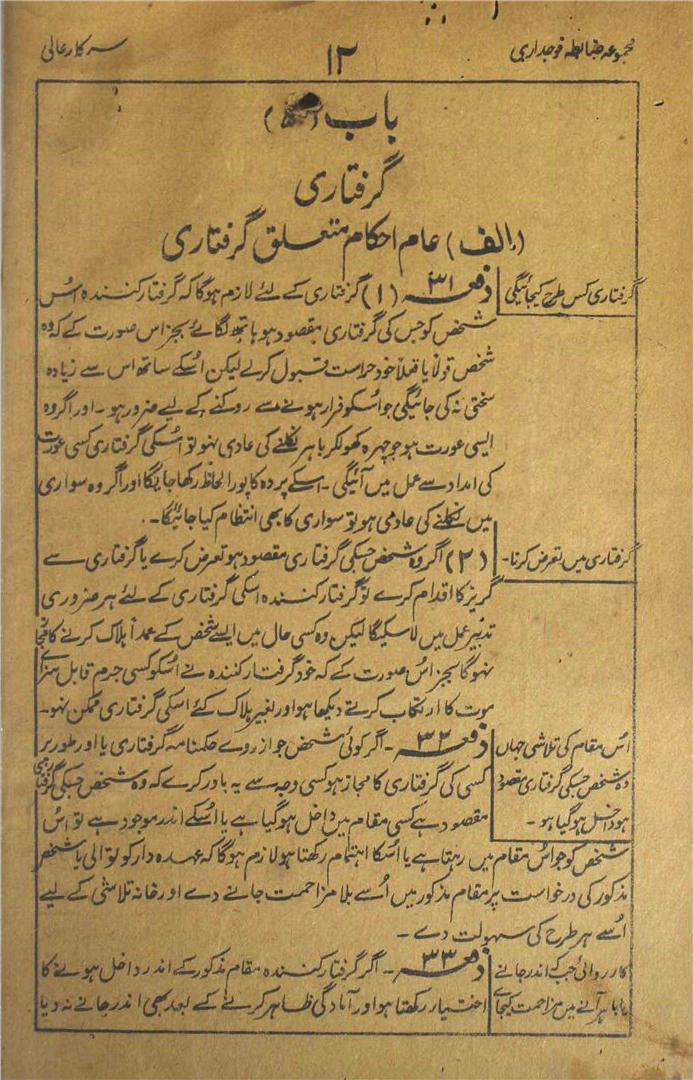 مجموعہ ضابطہ فوجداری
۱۲
سرکار عالی
باب (
گرفتاری
(الف) عام احکام متعلق گرفتاری
گرفتاری کس طرح کیجائیگی
دفعہ ۳۱ (۱) گرفتاری کے لئے لازم ہوگا کہ گرفتار کنندہ اُس
شخص کو جس کی گرفتاری مقصود ہو ہاتھ لگائے بجز اس صورت کے کہ وہ
شخص قولاً یا فعلاً خود حراست قبول کرلے لیکن اُسکے ساتھ اس سے زیادہ
سختی نہ کی جائیگی جو اُسکو فرار ہونے سے روکنے کے لیے ضرور ہو ۔ اور اگر وہ
ایسی عورت ہو جو چہرہ کھولکر باہر نکلنے کی عادی نہو تو اُسکی گرفتاری کسی عورت
کی امداد سے عمل میں آئیگی ۔ اسکے پردہ کا پورا لحاظ رکھا جائیگا اور اگر وہ سواری
میں نکلنے کی عادی ہو تو سواری کا بھی انتظام کیا جائیگا ۔
گرفتاری میں تعرض کرنا ۔
(۲) اگر وہ شخص جسکی گرفتاری مقصود ہو تعرض کرے یا گرفتاری سے
گریز کا اقدام کرے تو گرفتار کنندہ اسکی گرفتاری کے لئے ہر ضروری
تدبیر عمل میں لاسکیگا لیکن وہ کسی حال میں ایسے شخص کے عمداً ہلاک کرنے کا مجاز
نہوگا بجز اس صورت کے کہ خود گرفتار کنندہ نے اُسکو کسی جرم قابل سزائے
موت کا ارتکاب کرتے دیکھا ہو اور بغیر ہلاک کئے اسکی گرفتاری ممکن نہو ۔
اُس مقام کی تلاشی جہاں
وہ شخص جسکی گرفتاری مقصود
ہو داخل ہوگیا ہو ۔
دفعہ ۳۲ ۔ اگر کوئی شخص جو از روے حکمنامہ گرفتاری یا اور طور پر
کسی کی گرفتاری کا مجاز ہو کسی وجہ سے یہ باور کرے کہ وہ شخص جسکی گرفتاری
مقصود ہے کسی مقام میں داخل ہوگیا ہے یا اُسکے اندر موجود ہے تو اُس
شخص کو جو اُس مقام میں رہتا ہے یا اُسکا اہتمام رکھتا ہو لازم ہوگا کہ عہدہ دار کوتوالی یا شخص
مذکور کی درخواست پر مقام مذکور میں اُسے بلا مزاحمت جانے دے اور خانہ تلاشی کے لیے
اُسے ہر طرح کی سہولت دے ۔
کارروائی جبکہ اندر جانے
یا باہر آنے میں مزاحمت کیجائے
دفعہ ۳۳ ۔ اگر گرفتار کنندہ مقام مذکور کے اندر داخل ہونے کا
اختیار رکھتا ہو اور آمادگی ظاہر کرنے کے بعد بھی اندر جانے نہ دیا